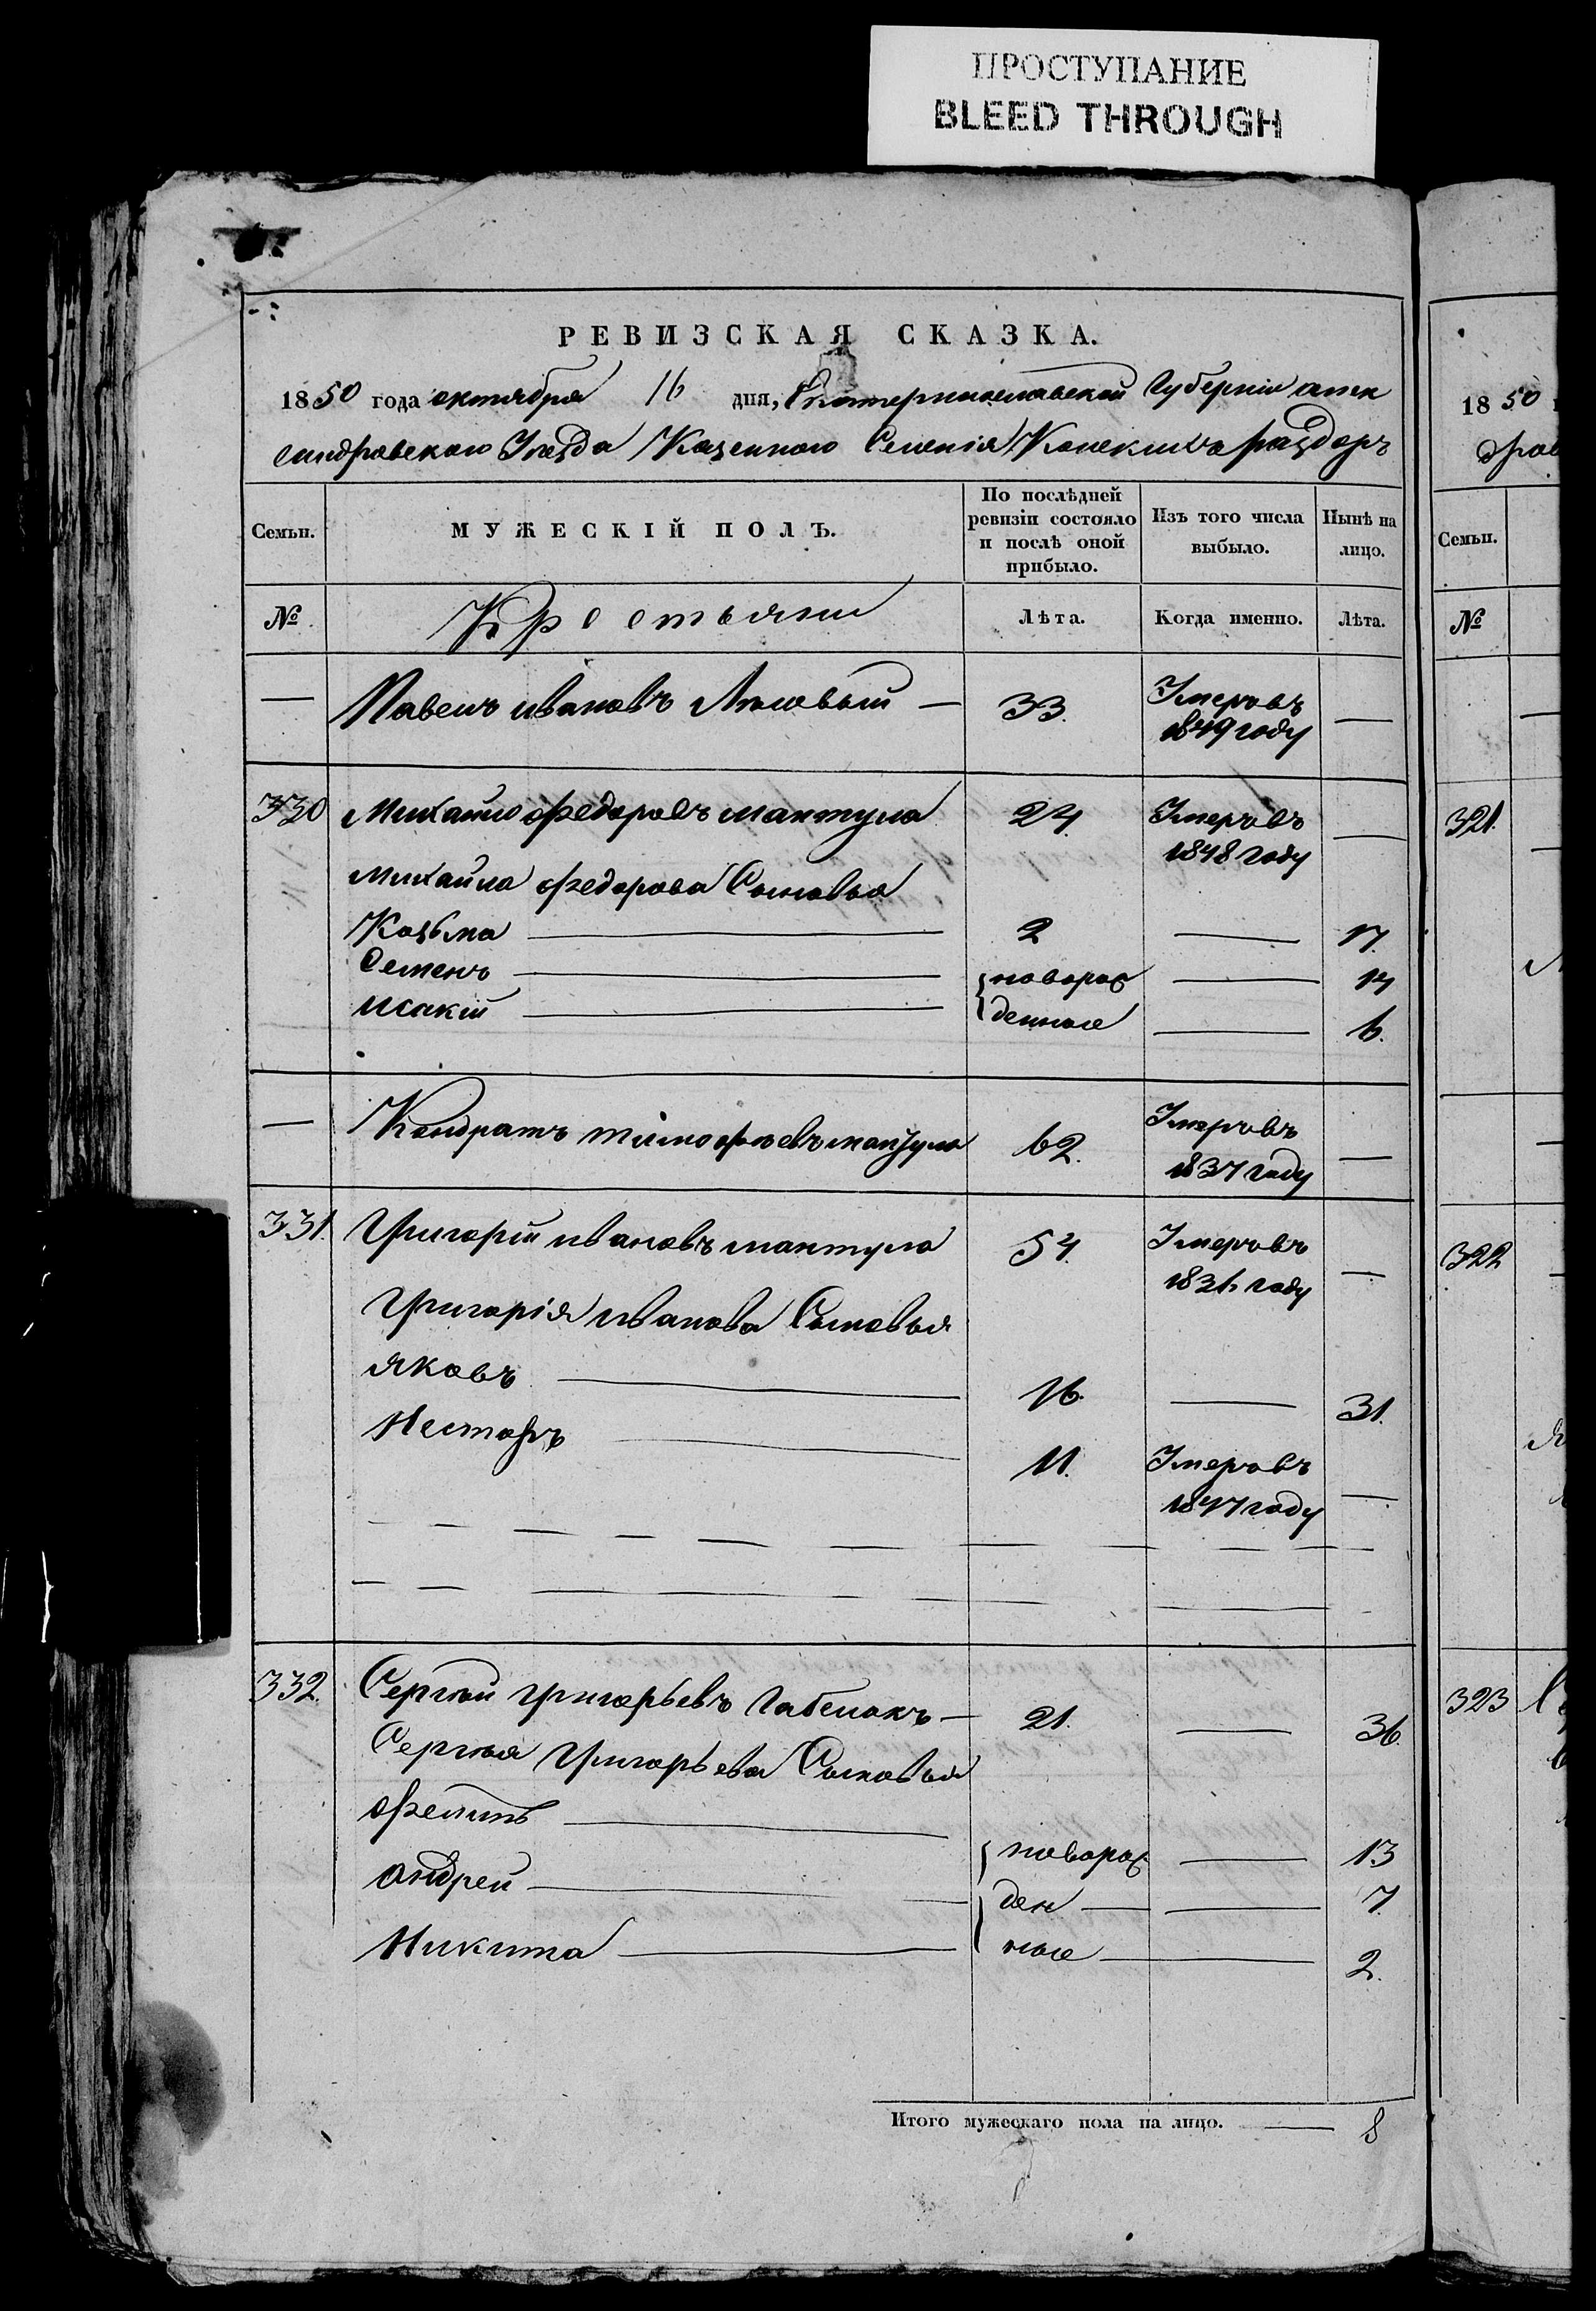 ПРОСТУПАНИЕ
BLEED THROUGH
РЕВИЗСКАЯ СКАЗКА.
1850 года октября 16 дня, Екатеринославской Губернiи алек
сандровского Уезда Казенного Селенiя Конскихъ раздоръ
Семьи. МУЖЕСКIЙ ПОЛЪ. По послѣдней ревизiи состояло и послѣ оной прибыло. Изъ того числа выбыло. Нынѣ на лицо.
№ Крестьяни Лѣта. Когда именно. Лѣта.
— Павелъ ивановъ — 33. Умеръ въ 1849 году —
330 Михайло федоровъ мантула 24. Умеръ въ 1848 году —
михайла федорова Сыновья
Козьма — 2 — 17.
Семенъ — новорож — 14
исакiй — денные — 6.
— Кондратъ тимофѣевъ мантула 62. Умеръ въ 1837 году —
331. Григорiй ивановъ мантула 54. Умеръ въ 1836 году —
Григорiя иванова Сыновья
яковъ — 16. — 31.
Несторъ — 11. Умеръ въ 1847 году —
332. Сергѣй григорьевъ Габелокъ — 21. — 36.
Сергѣя Григорьева Сыновья
филипъ — новорож — 13
андрей — ден — 7.
Никита — ные — 2.
Итого мужескаго пола на лицо. — 8
1850
дров
Семьи.
№
321.
322
323